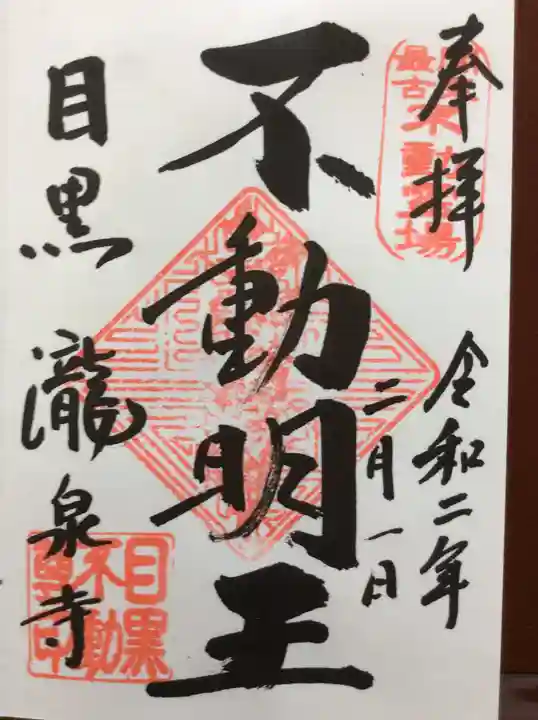 奉拝
最古不動霊場
令和二年
二月一日
不動明王
目黒瀧泉寺
目黒不動尊印